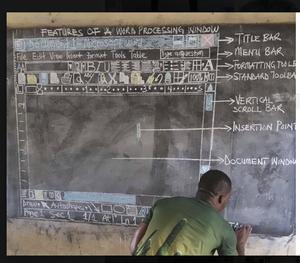 FEATURES OF A WORD PROCESSING WINDOW
Document 1 - Microsoft Word
TITLE BAR
File Edit View Insert Format Tools Table
Type a question
MENU BAR
FORMATTING TOOLB
STANDARD TOOLBA
100%
VERTICAL
SCROLL BAR
INSERTION POINT
DOCUMENT WINDOW
Draw AutoShapes
Page 1 Sec 1 1/1 At 1"